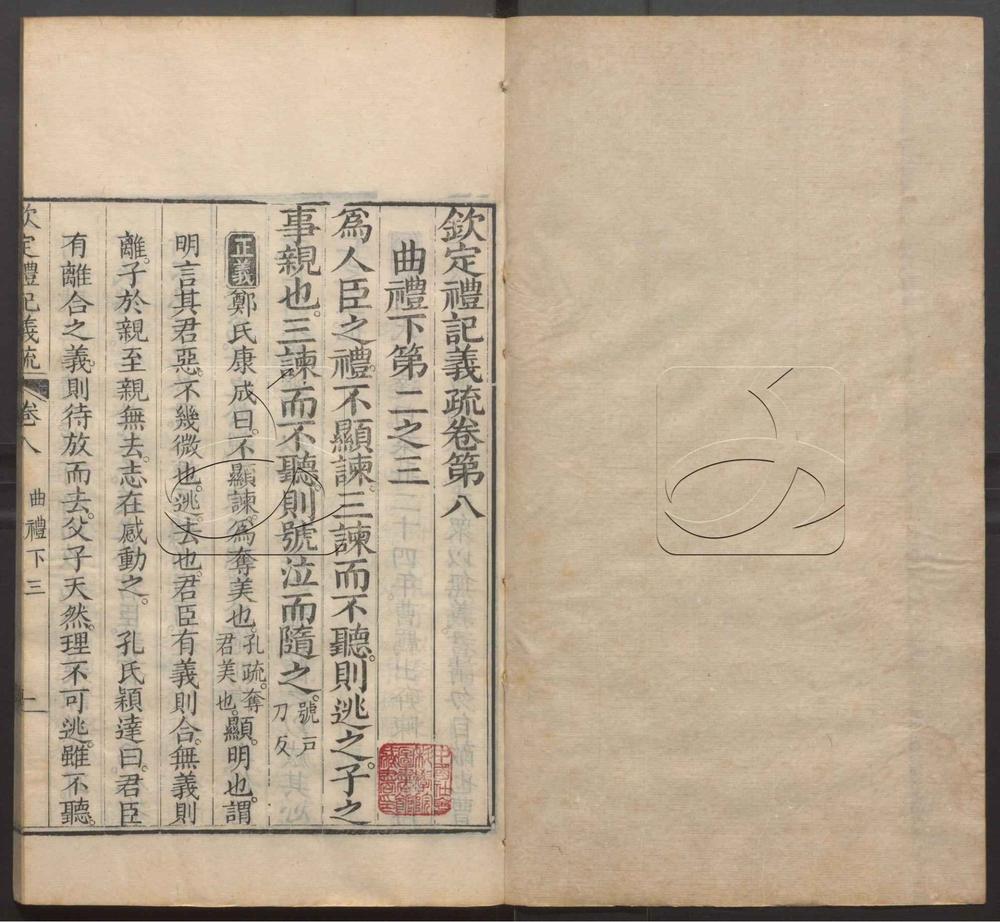 欽定禮記義疏卷第八
曲禮下第二之三
爲人臣之禮不顯諫三諫而不聽則逃之子之
事親也三諫而不聽則號泣而隨之號戸刀反
正義鄭氏康成曰不顯諫爲奪美也孔疏奪君美也顯明也謂
明言其君惡不幾微也逃去也君臣有義則合無義則
離子於親至親無去志在感動之 孔氏穎達曰君臣
有離合之義則待放而去父子天然理不可逃雖不聽
欽定禮記義疏 卷八 曲禮下三 一